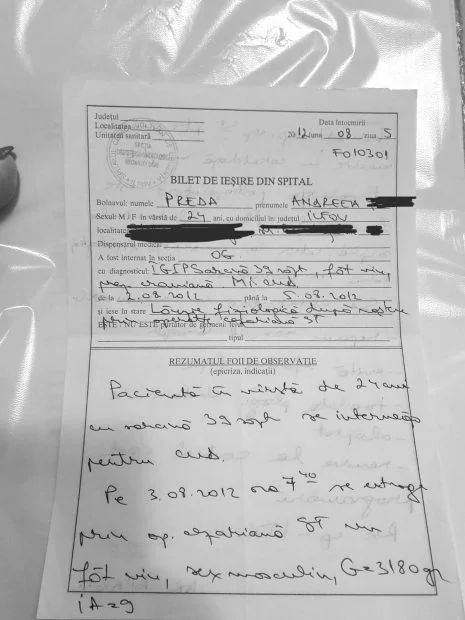 Județul
Localitatea
Unitatea sanitară
Data întocmirii
2012 luna 08 ziua 5
F010301
SECȚIA
BILET DE IEȘIRE DIN SPITAL
Bolnavul: numele PREDA prenumele ANDREEA
Sexul: M / F în vârstă de 24 ani, cu domiciliul în: județul ILFOV
localitatea
Dispensarul medical
A fost internat în secția OG
cu diagnosticul: IGIPSarcină 39 săpt, făt viu,
prez craniană. M.i.
de la 2.08.2012 până la 5.08.2012
și iese în stare Lăuzie fiziologică după naștere
prin operație cezariană ST
ESTE / NU ESTE purtător de germeni:
tipul
REZUMATUL FOII DE OBSERVAȚIE
(epicriza, indicații)
Pacientă în vârstă de 24 ani
cu sarcină 39 săpt se internează
pentru
Pe 3.08.2012 ora 7 40 se extrage
prin op. cezariană ST un
făt viu, sex masculin, G=3180gr
iA=9